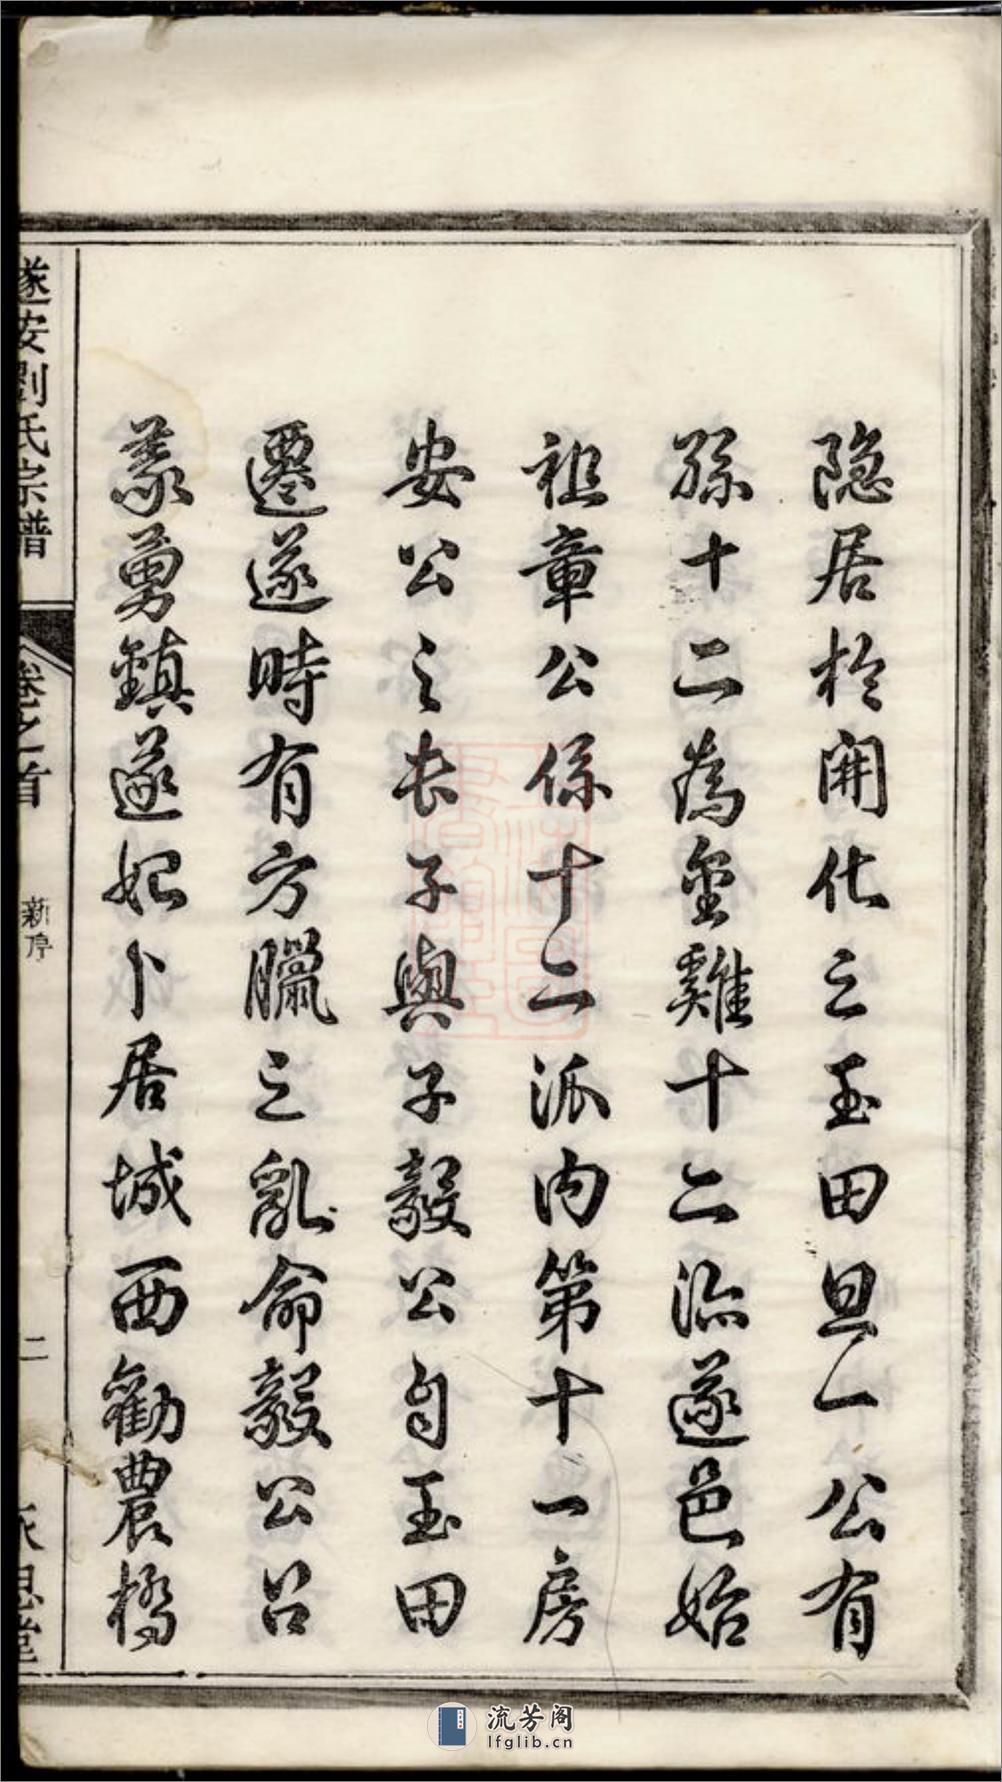 隐居於開化之玉田旦一公有
孫十二為金雞十二派遂邑始
祖章公係十二派内第十一房
安公之长子與子毅公自玉田
遷遂時有方臘之亂命毅公召
義勇鎮遂始卜居城西勸農橋
遂安劉氏宗譜
卷之首
新序
二
永思堂
流芳阁
lfglib.cn